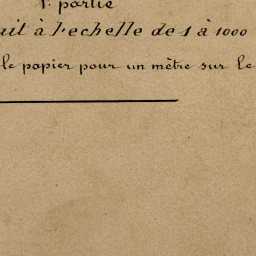 1. partie
ail à l'echelle de 1 à 1000
le papier pour un mètre sur le